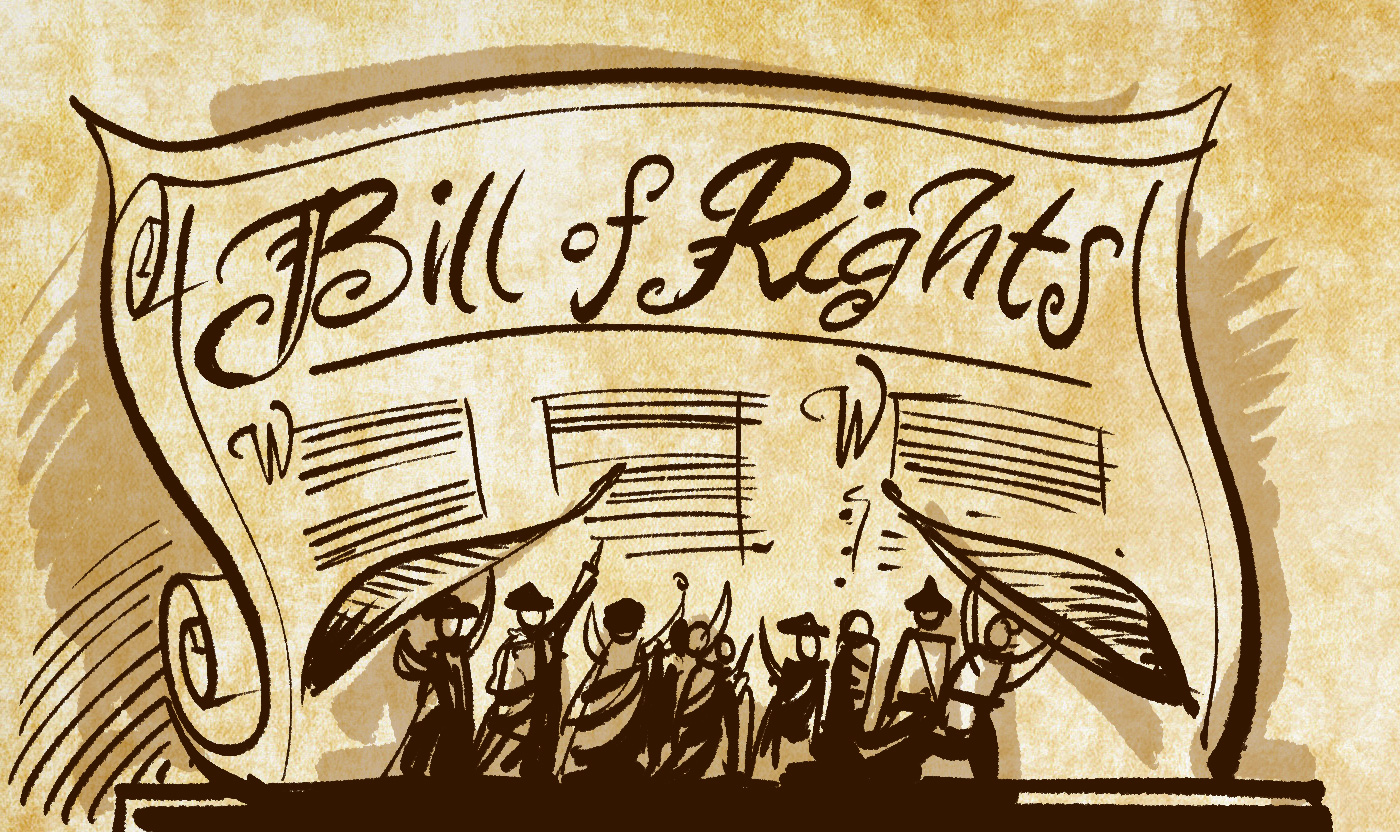 Bill of Rights
W W